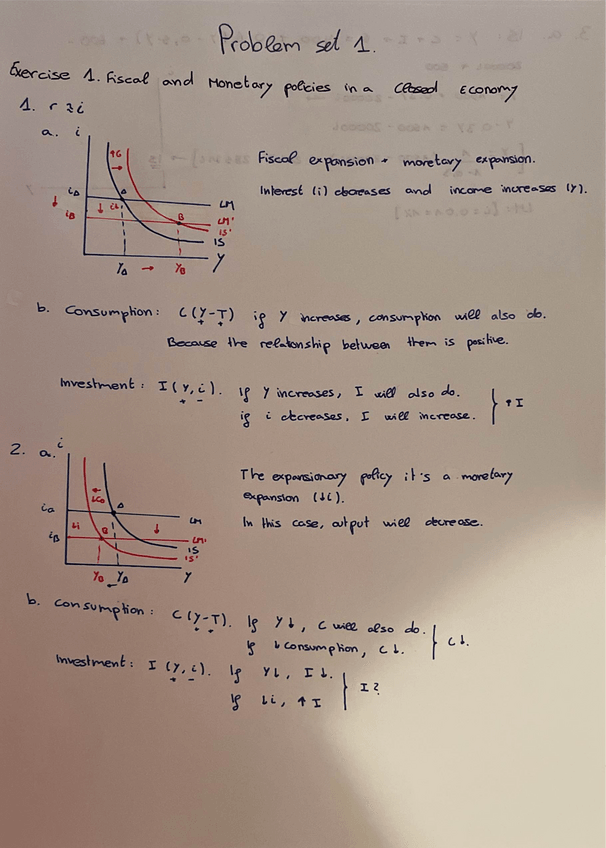 Problem set 1.
Exercise 1. Fiscal and Monetary policies in a closed Economy
1. r ≈ i
a. i
↑G
→
Fiscal expansion + monetary expansion.
Interest (i) decreases and income increases (Y).
iA
A
↓
↓
↓i
LM
iB
B
LM'
IS'
IS
YA → YB Y
b. Consumption: C(Y-T) if Y increases, consumption will also do.
+ +
Because the relationship between them is positive.
Investment: I(Y,i). If Y increases, I will also do.
+ -
if i decreases, I will increase.
↑I
2. a. i
←
↓C0
The expansionary policy it's a monetary
expansion (↓i).
In this case, output will decrease.
iA
A
LM
iB
↓i
B
↓
LM'
IS
IS'
YB ← YA Y
b. Consumption: C(Y-T). If Y↓, C will also do.
+ +
If ↓ consumption, C↓.
C↓.
Investment: I(Y,i). If Y↓, I↓.
+ -
If ↓i, ↑I
I?